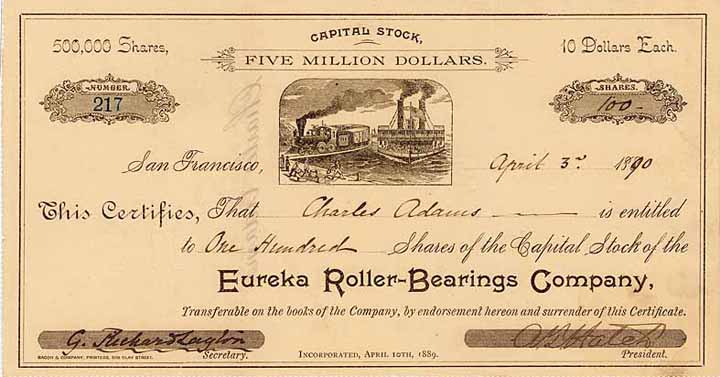 CAPITAL STOCK,
500,000 Shares, FIVE MILLION DOLLARS. 10 Dollars Each.
NUMBER. SHARES.
217 100 -
San Francisco, April 3rd 1890
This Certifies, That Charles Adams is entitled
to One Hundred Shares of the Capital Stock of the
Eureka Roller-Bearings Company,
Transferable on the books of the Company, by endorsement hereon and surrender of this Certificate.
G. Richard Hatch
BACON & COMPANY, PRINTERS, 508 CLAY STREET. Secretary. INCORPORATED, APRIL 10TH, 1889. President.